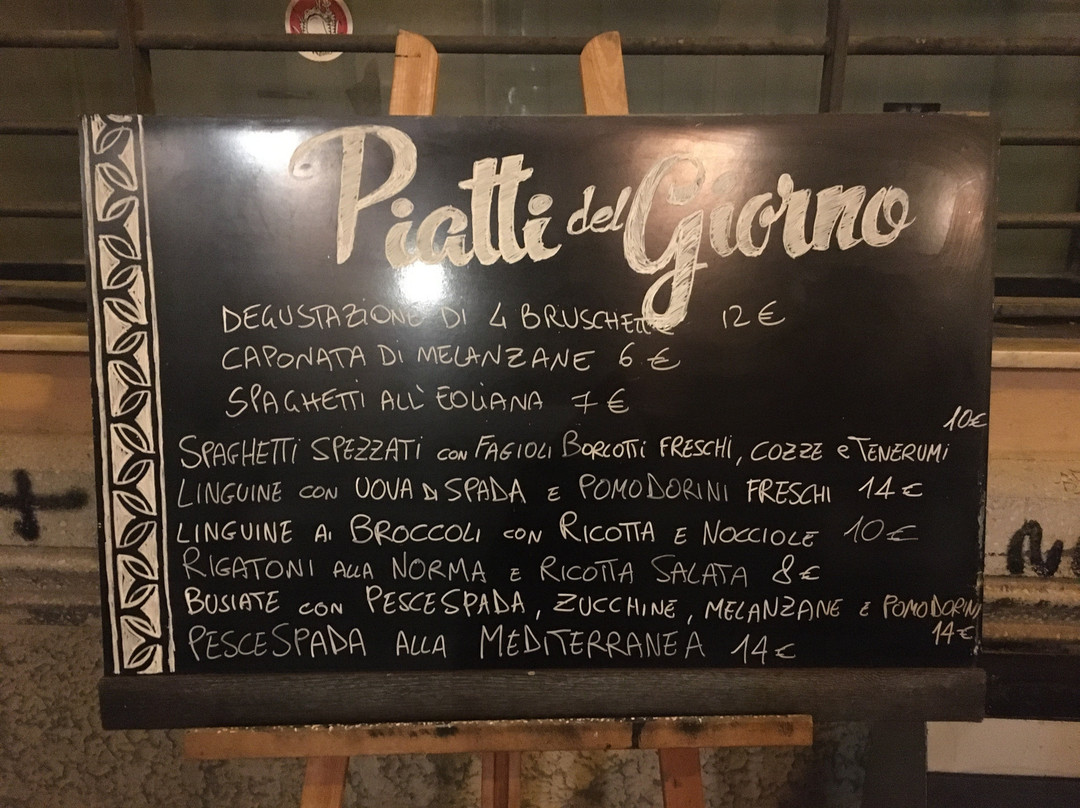 Piatti del Giorno
DEGUSTAZIONE DI 4 BRUSCHETTE 12 €
CAPONATA DI MELANZANE 6 €
SPAGHETTI ALL' EOLIANA 7 €
10€
SPAGHETTI SPEZZATI CON FAGIOLI BORLOTTI FRESCHI, COZZE e TENERUMI
LINGUINE CON UOVA DI SPADA E POMODORINI FRESCHI 14 €
LINGUINE AI BROCCOLI CON RICOTTA E NOCCIOLE 10 €
RIGATONI ALLA NORMA E RICOTTA SALATA 8 €
BUSIATE CON PESCESPADA, ZUCCHINE, MELANZANE E POMODORINI
14 €
PESCESPADA ALLA MEDITERRANEA 14 €